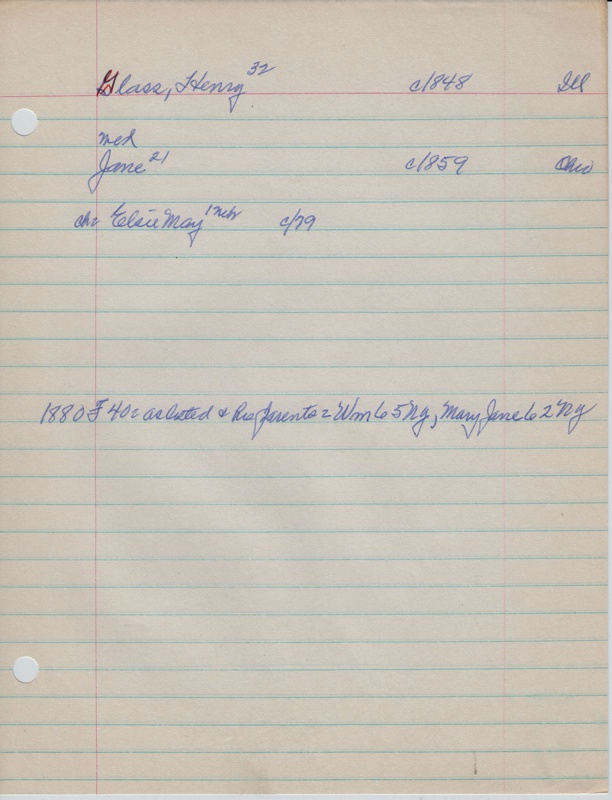 Glass, Henry 32 c/1848 Ill
md
Jane 21 c/1859 Ohio
ch: Elsie May c/79
1880 F 40: as listed & his parents = Wm 65 NY, Mary Jane 62 NY